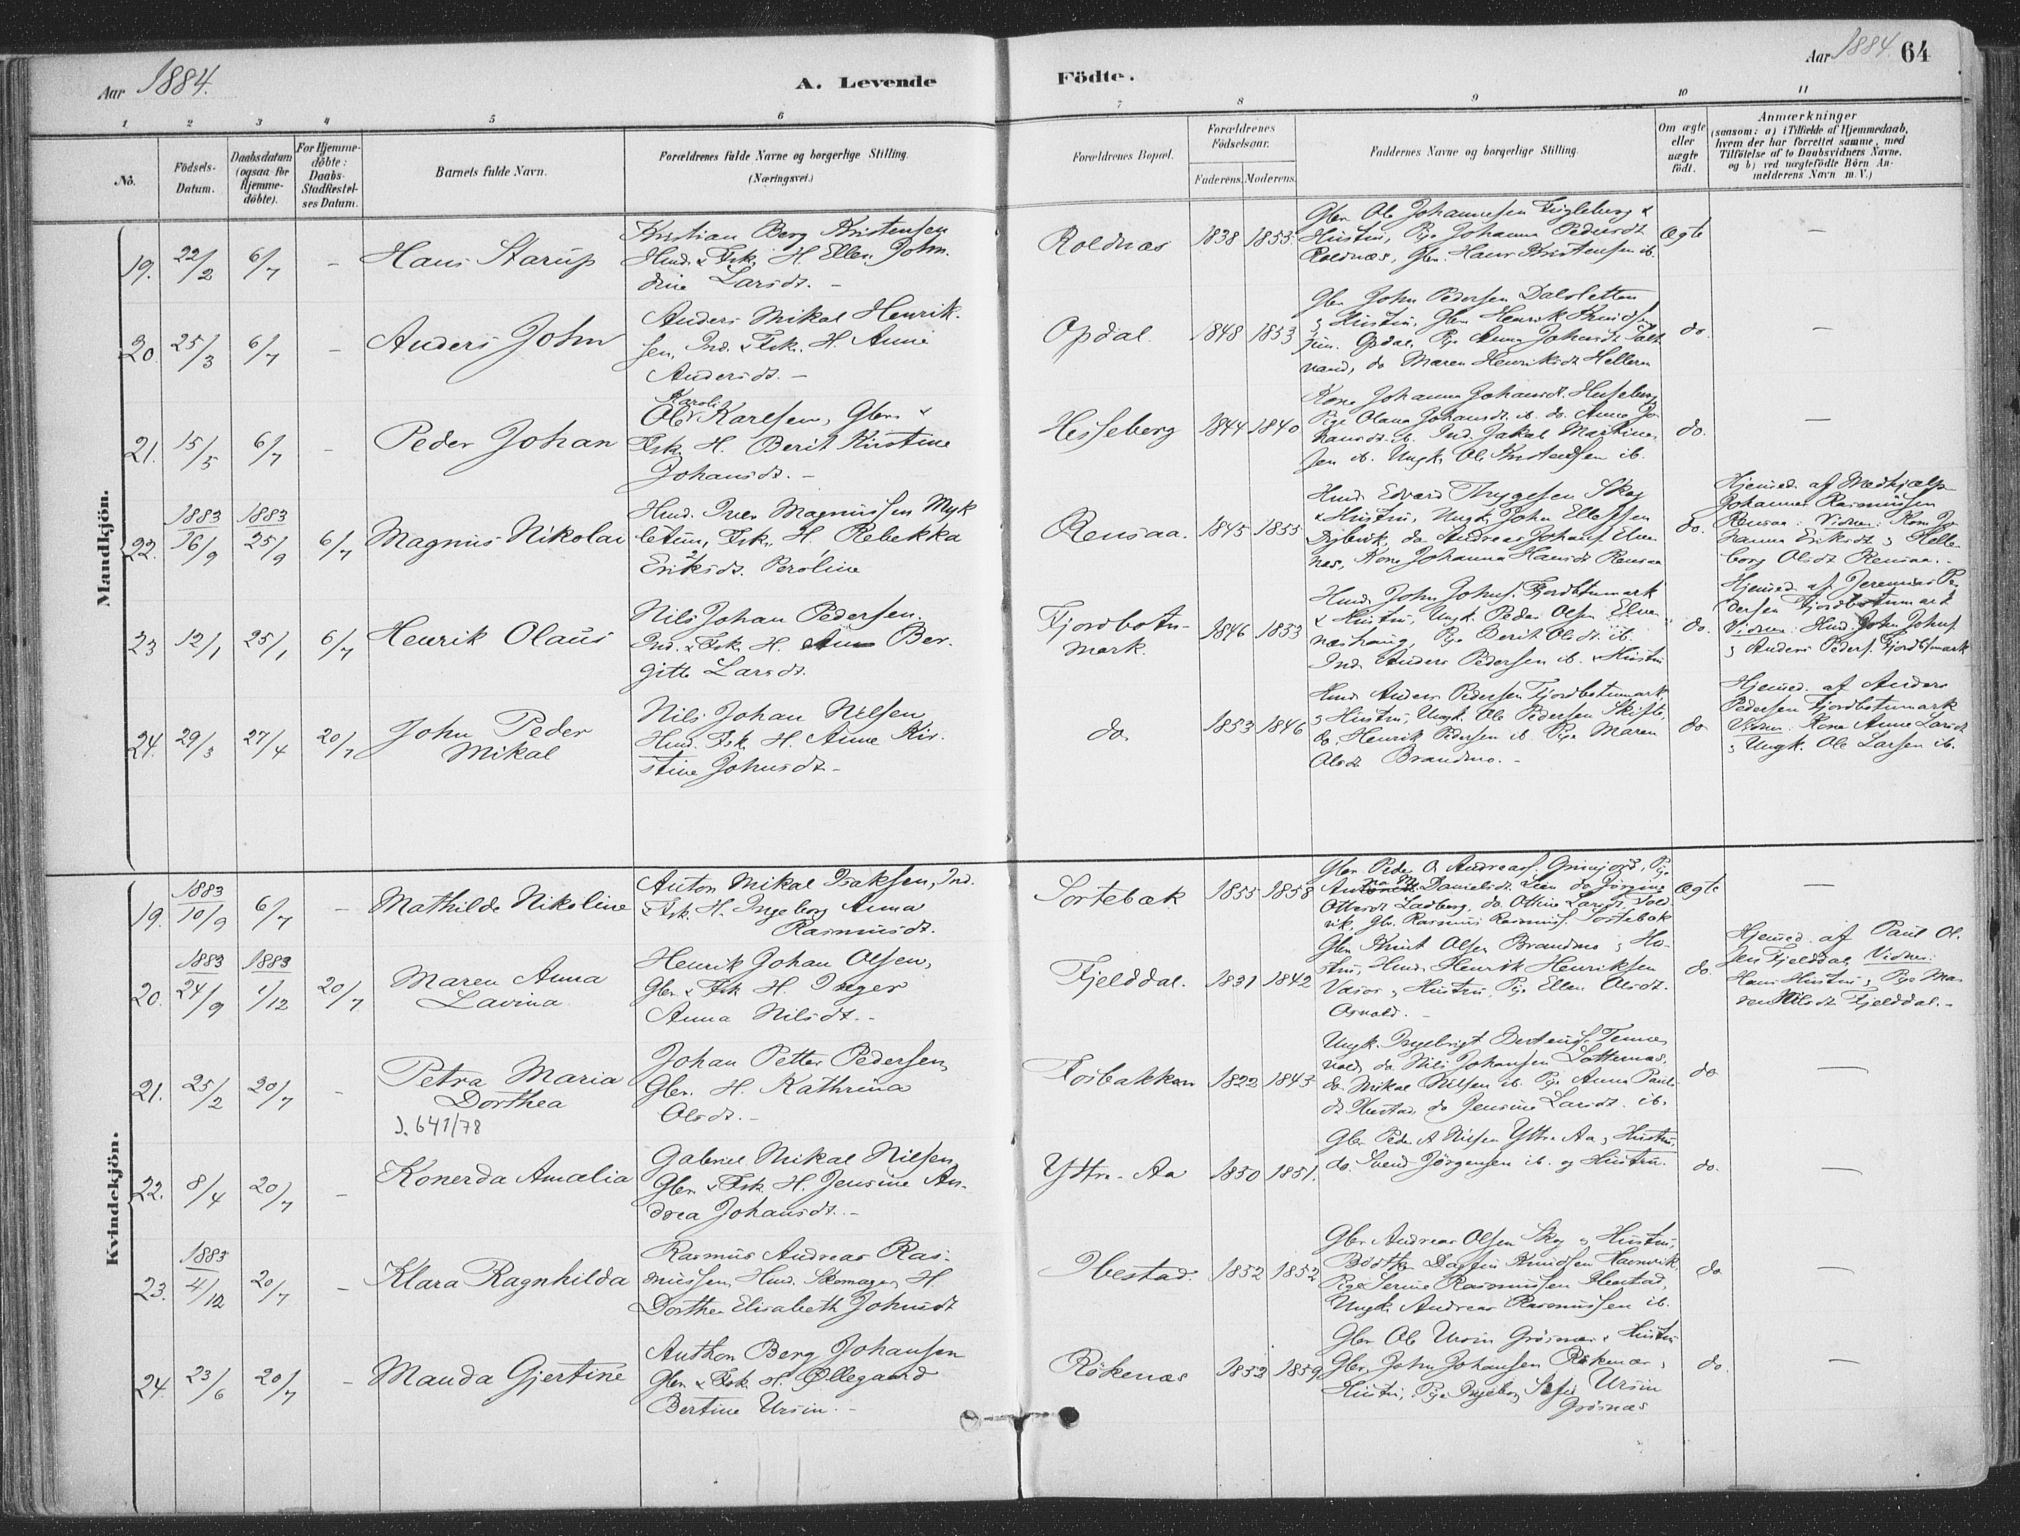 Aar 1884.
A. Levende
Födte.
Aar 1884. 64
1 2 3 4 5 6 7 8 9 10 11
No.
Födsels-Datum.
Daabsdatum (ogsaa for Hjemme-döbte).
For Hjemme-döbte: Daabs-Stadfæstel-ses Datum.
Barnets fulde Navn.
Forældrenes fulde Navne og borgerlige Stilling. (Næringsvei.)
Forældrenes Bopæl.
Forældrenes Födselsaar.
Faderens. Moderens.
Faddernes Navne og borgerlige Stilling.
Om ægte eller uægte födt.
Anmærkninger
(saasom: a) i Tilfælde af Hjemmedaab,
hvem der har forrettet samme, med
Tilföielse af to Daabsvidners Navne,
og b) ved uægtefödte Börn An-
melderens Navn m. V.)
Mandkjön.
19. 22/2 6/7 - Hans Starup
Kristian Berg Kristensen
Hmd. & Fsk. H. Ellen John-
dine Larsdt. -
Roldnæs 1838 1853
Gbr. Ole Johannesen Fugleberg &
Hustru, Pige Johanna Pedersdt
Roldnæs, Gbr. Hans Kristensen ib.
Ægte -
20. 25/3 6/7 - Anders John
Anders Mikal Henrik-
sen, Ind. & Fsk. H. Anne
Andersdt. -
Opdal. 1848 1853
Gbr. John Pedersen Dalsletten
& Hustru, Gbr. Henrik Knudsen
jun. Opdal, Pige Anna Johansdt Salt-
vand, do Maren Henriksdt Helleren
do. -
21. 15/5 6/7 - Peder Johan
Ole Karoli Karlsen, Gbr. &
Fsk. H. Berit Kirstine
Johansdt. -
Hesseberg 1844 1840
Kone Johanna Johansdt. Hesseberg
Pige Olava Johansdt. ib. do. Anna Jo-
hansdt. ib. Ind. Jakob Martinus-
sen ib. Ungk. Ole Kristensen ib.
do. -
22. 1883 16/9 1883 25/9 6/7 Magnus Nikolai
Hmd. Iver Magnussen Myk-
letun, Fsk. H. Rebekka
Eriksdt. Peroline
Rensaa. 1845 1855
Hmd. Edvard Thygesen Skog
& Hustru, Ungk. John Ellefsen
Dybvik, do Andreas Johans. Elve-
næs, Kone Johanna Hansdt Rensaa
do.
Hjemmed. af Medhjælp.
Johannes Rasmussen
Rensaa. Vidner: Kone Jo-
hanna Eriksdt & Helle-
borg Olsdt Rensaa. -
23 12/1 25/1 6/7 Henrik Olaus
Nils Johan Pedersen,
Ind. & Fsk. H. Ber-
gitte Larsdt.
Fjordbotn-
mark. 1846 1833
Hmd. John Johns. Fjordbotnmark
& Hustru, Ungk. Peder Olsen Elve-
næshaug, Pige Berit Olsdt. ib.
Ind. Anders Pedersen ib. & Hustru
do.
Hjemmed. af Jeremias Pe-
dersen Fjordbotnmark
Vidner: Hmd. John Johns.
& Anders Peders. Fjordbtmark
24. 29/3 27/4 20/7 John Peder
Mikal
Nils Johan Nilsen
Hmd. Fsk. H. Anne Kir-
stine Johnsdt. -
do. 1853 1846
Hmd. Anders Pedersen Fjordbotnmark,
& Hustru, Ungk. Ole Pedersen Skifte,
do. Henrik Pedersen ib. Pige Maren
Olsdt Brandmo. -
do
Hjemmed. af Anders
Pedersen Fjordbotnmark
Vidner: Kone Anne Larsdt
& Ungk. Ole Larsen ib.
Kvindekjön.
19. 1883 10/9 6/7 - Mathilde Nikoline
Anton Mikal Isaksen, Ind.
& Fsk. H. Ingeborg Anna
Rasmusdt.
Sortebæk 1855 1858
Gbr. Peder A Andreass. Grimjord, Pige
Danielsdt. Lien do Jørgine
Ottersdt Ladberg, do. Ottine Larsdt.
Gbr. Rasmus Rasmuss. Sortebæk
Ægte -
20. 1883 24/9 1883 1/12 20/7 Maren Anna
Lavina
Henrik Johan Olsen,
Gbr. & Fsk H. Inger
Anna Nilsdt. -
Fjelddal. 1831 1842
Gbr. Knut Olsen Brandmo & Hu-
stru, Hmd. Henrik Henriksen
& Hustru, Pige Ellen Olsdt.
do.
Hjemmed. af Paul Ol-
sen Fjelddal, Vidner:
Hans Hustru & Pige Ma-
ren Nilsdt Fjelddal. -
21. 25/2 20/7 - Petra Maria
Dorthea
J. 641/78
Johan Petter Pedersen,
Gbr. H. Kathrina
Olsdt. -
Fosbakken 1822 1843
Ungk. Ingebrigt Bertheus. Tennæ-
vold, do Nils Johansen Sotternæs,
do. Mikal Nilsen ib. Pige Anna Pauls-
dt Ibestad, do Jensine Larsdt. ib.
do -
22. 8/4 20/7 - Konerda Amalia
Gabriel Mikal Nilsen
Gbr. & Fsk. H. Jensine An-
drea Johansdt. -
Yttre-Aa 1850 1851.
Gbr. Peder A Nilsen Yttre Aa & Hustru,
do. Svend Jörgensen ib. og Hustru.
do. -
23. 1883 4/12 20/7 - Klara Ragnhilda
Rasmus Andreas Ras-
mussen, Hmd. Skomager, H.
Dorthea Elisabeth Johnsdt
Ibestad. 1852 1852
Gbr. Andreas Olsen Skog & Hustru,
Bödtker Knudsen Hamnvik,
Pige Serine Rasmussen Ibestad,
Ungk. Andreas Rasmussen ib.
do. -
24. 23/6 20/7 - Manda Gjertine
Anthon Berg Johansen
Gbr. & Fsk. H. Ollegaard
Bertine Ursin. -
Rökenæs 1852 1859
Gbr. Ole Ursin Grösnæs & Hustru
Gbr. John Johansen Rökenæs &
Hustru, Pige Ingeborg Ursin
Grösnæs
do. -